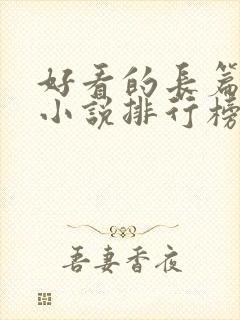 好看的長篇
小說排行榜
吾妻香夜